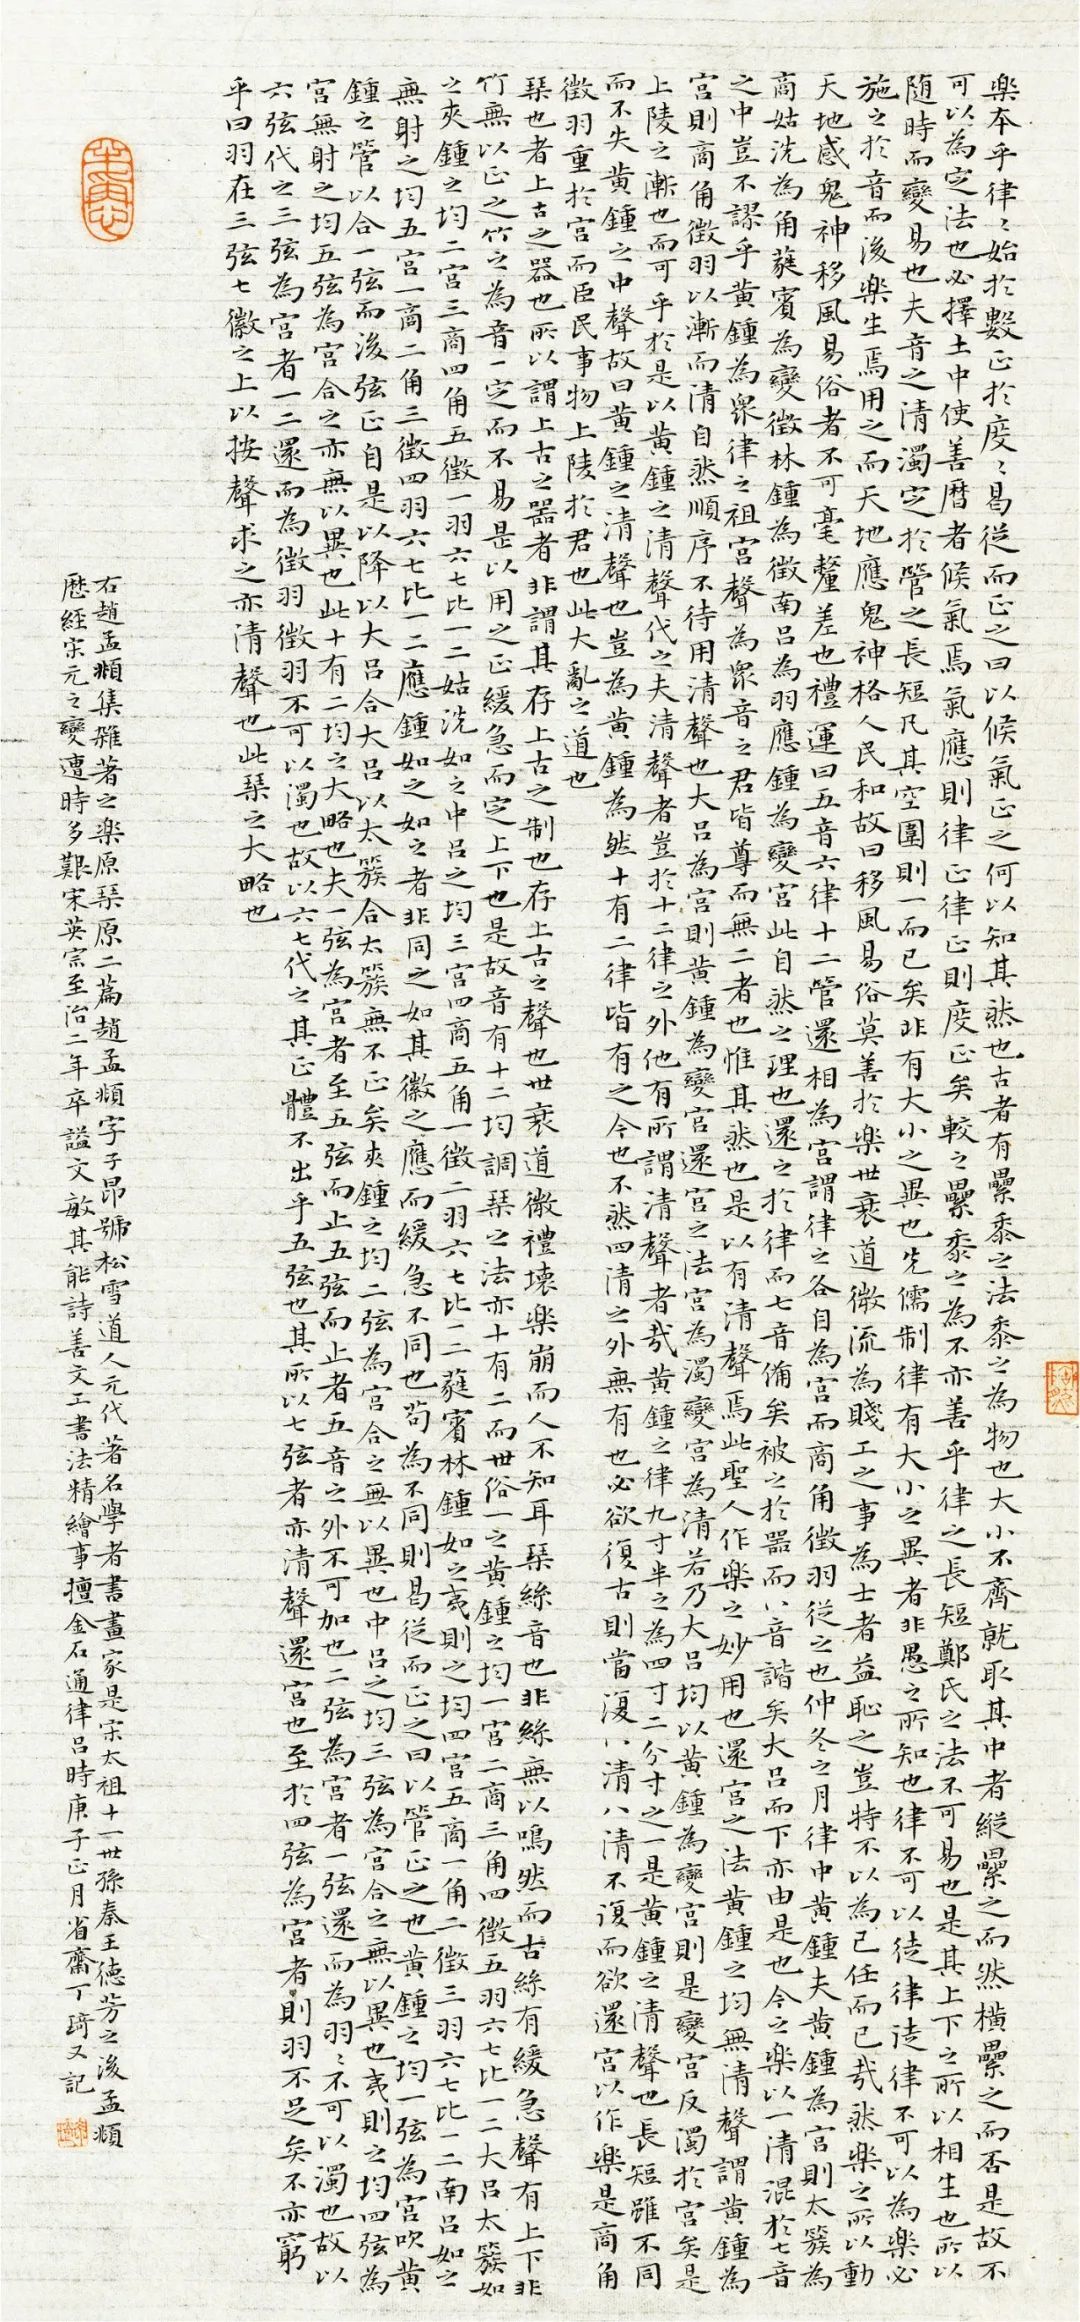 楽本乎律〻始於數正於度〻曷從而正之曰以候氣正之何以知其然也古者有纍黍之法黍之為物也大小不齊就取其中者縱纍之而然橫纍之而否是故不
可以為定法也必擇土中使善曆者候氣焉氣應則律正律正則度正矣較之纍黍之為不亦善乎律之長短鄭氏之法不可易也是其上下之所以相生也所以
随時而變易也夫音之清濁定於管之長短凡其空圍則一而已矣非有大小之異也先儒制律有大小之異者非愚之所知也律不可以徒律徒律不可以為樂必
施之於音而後樂生焉用之而天地應鬼神格人民和故曰移風易俗莫善於楽世衰道微流為賤工之事為士者益恥之豈特不以為己任而已哉然楽之所以動
天地感鬼神移風易俗者不可毫釐差也禮運曰五音六律十二管還相為宮謂律之各自為宮而商角徵羽從之也仲冬之月律中黄鍾夫黄鍾為宮則太簇為
商姑洗為角蕤賓為變徵林鍾為徵南吕為羽應鍾為變宮此自然之理也還之於律而七音備矣被之於噐而八音諧矣大吕而下亦由是也今之楽以一清混於七音
之中豈不謬乎黄鍾為衆律之祖宮聲為衆音之君皆尊而無二者也惟其然也是以有清聲焉此聖人作楽之妙用也還宮之法黄鍾之均無清聲謂黄鍾為
宮則商角徵羽以漸而清自然順序不待用清聲也大吕為宮則黄鍾為變宮還宮之法宮為濁變宮為清若乃大吕均以黄鍾為變宮則是變宮反濁於宮矣是
上陵之漸也而可乎於是以黄鍾之清聲代之夫清聲者豈於十二律之外他有所謂清聲者哉黄鍾之律九寸半之為四寸二分寸之一是黄鍾之清聲也長短雖不同
而不失黄鍾之中聲故曰黄鍾之清聲也豈為黄鍾為然十有二律皆有之今也不然四清之外無有也必欲復古則當復八清八清不復而欲還宮以作楽是商角
徵羽重於宮而臣民事物上陵於君也此大亂之道也
琹也者上古之器也所以謂上古之噐者非謂其存上古之制也存上古之聲也世衰道微禮壞楽崩而人不知耳琹絲音也非絲無以鳴然而古絲有緩急聲有上下非
竹無以正之竹之為音一定而不易是以用之正緩急而定上下也是故音有十二均調琹之法亦十有二而世俗一之黄鍾之均一宮二商三角四徵五羽六七比一二大吕太簇如
之夾鍾之均二宮三商四角五徵一羽六七比一二姑洗如之中吕之均三宮四商五角一徵二羽六七比一二蕤賓林鍾如之夷則之均四宮五商一角二徵三羽六七比一二南吕如之
無射之均五宮一商二角三徵四羽六七比一二應鍾如之如之者非同之如其徽之應而緩急不同也茍為不同則曷從而正之曰以管正之也黄鍾之均一弦為宮吹黄
鍾之管以合一弦而後弦正自是以降以大吕合大吕以太簇合太簇無不正矣夾鍾之均二弦為宮合之無以異也中吕之均三弦為宮合之無以異也夷則之均四弦為
宮無射之均五弦為宮合之亦無以異也此十有二均之大略也夫一弦為宮者至五弦而止五弦而止者五音之外不可加也二弦為宮者一弦還而為羽〻不可以濁也故以
六弦代之三弦為宮者一二還而為徵羽徵羽不可以濁也故以六七代之其正體不出乎五弦也其所以七弦者亦清聲還宮也至於四弦為宮者則羽不足矣不亦窮
乎曰羽在三弦七徽之上以按聲求之亦清聲也此琹之大略也
右趙孟頫集雜著之楽原琹原二篇趙孟頫字子昂號松雪道人元代著名學者書畫家是宋太祖十一世孫秦王徳芳之後孟頫
歴經宋元之變遭時多艱宋英宗至治二年卒謚文敏其能詩善文工書法精繪事擅金石通律吕時庚子正月省齋丁琦又記